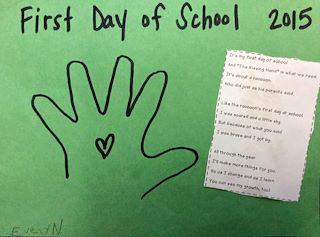 First Day of School 2015
It's my first day of school
And "The Kissing Hand" is what we read
It's about a raccoon
Who did just as his parents said
Like the raccoon's first day of school
I was scared and a little shy
But because of what you said
I was brave and I got by
All through the year
I'll make more things for you
So as I change and as I learn
You can see my growth, too!
EvelyN